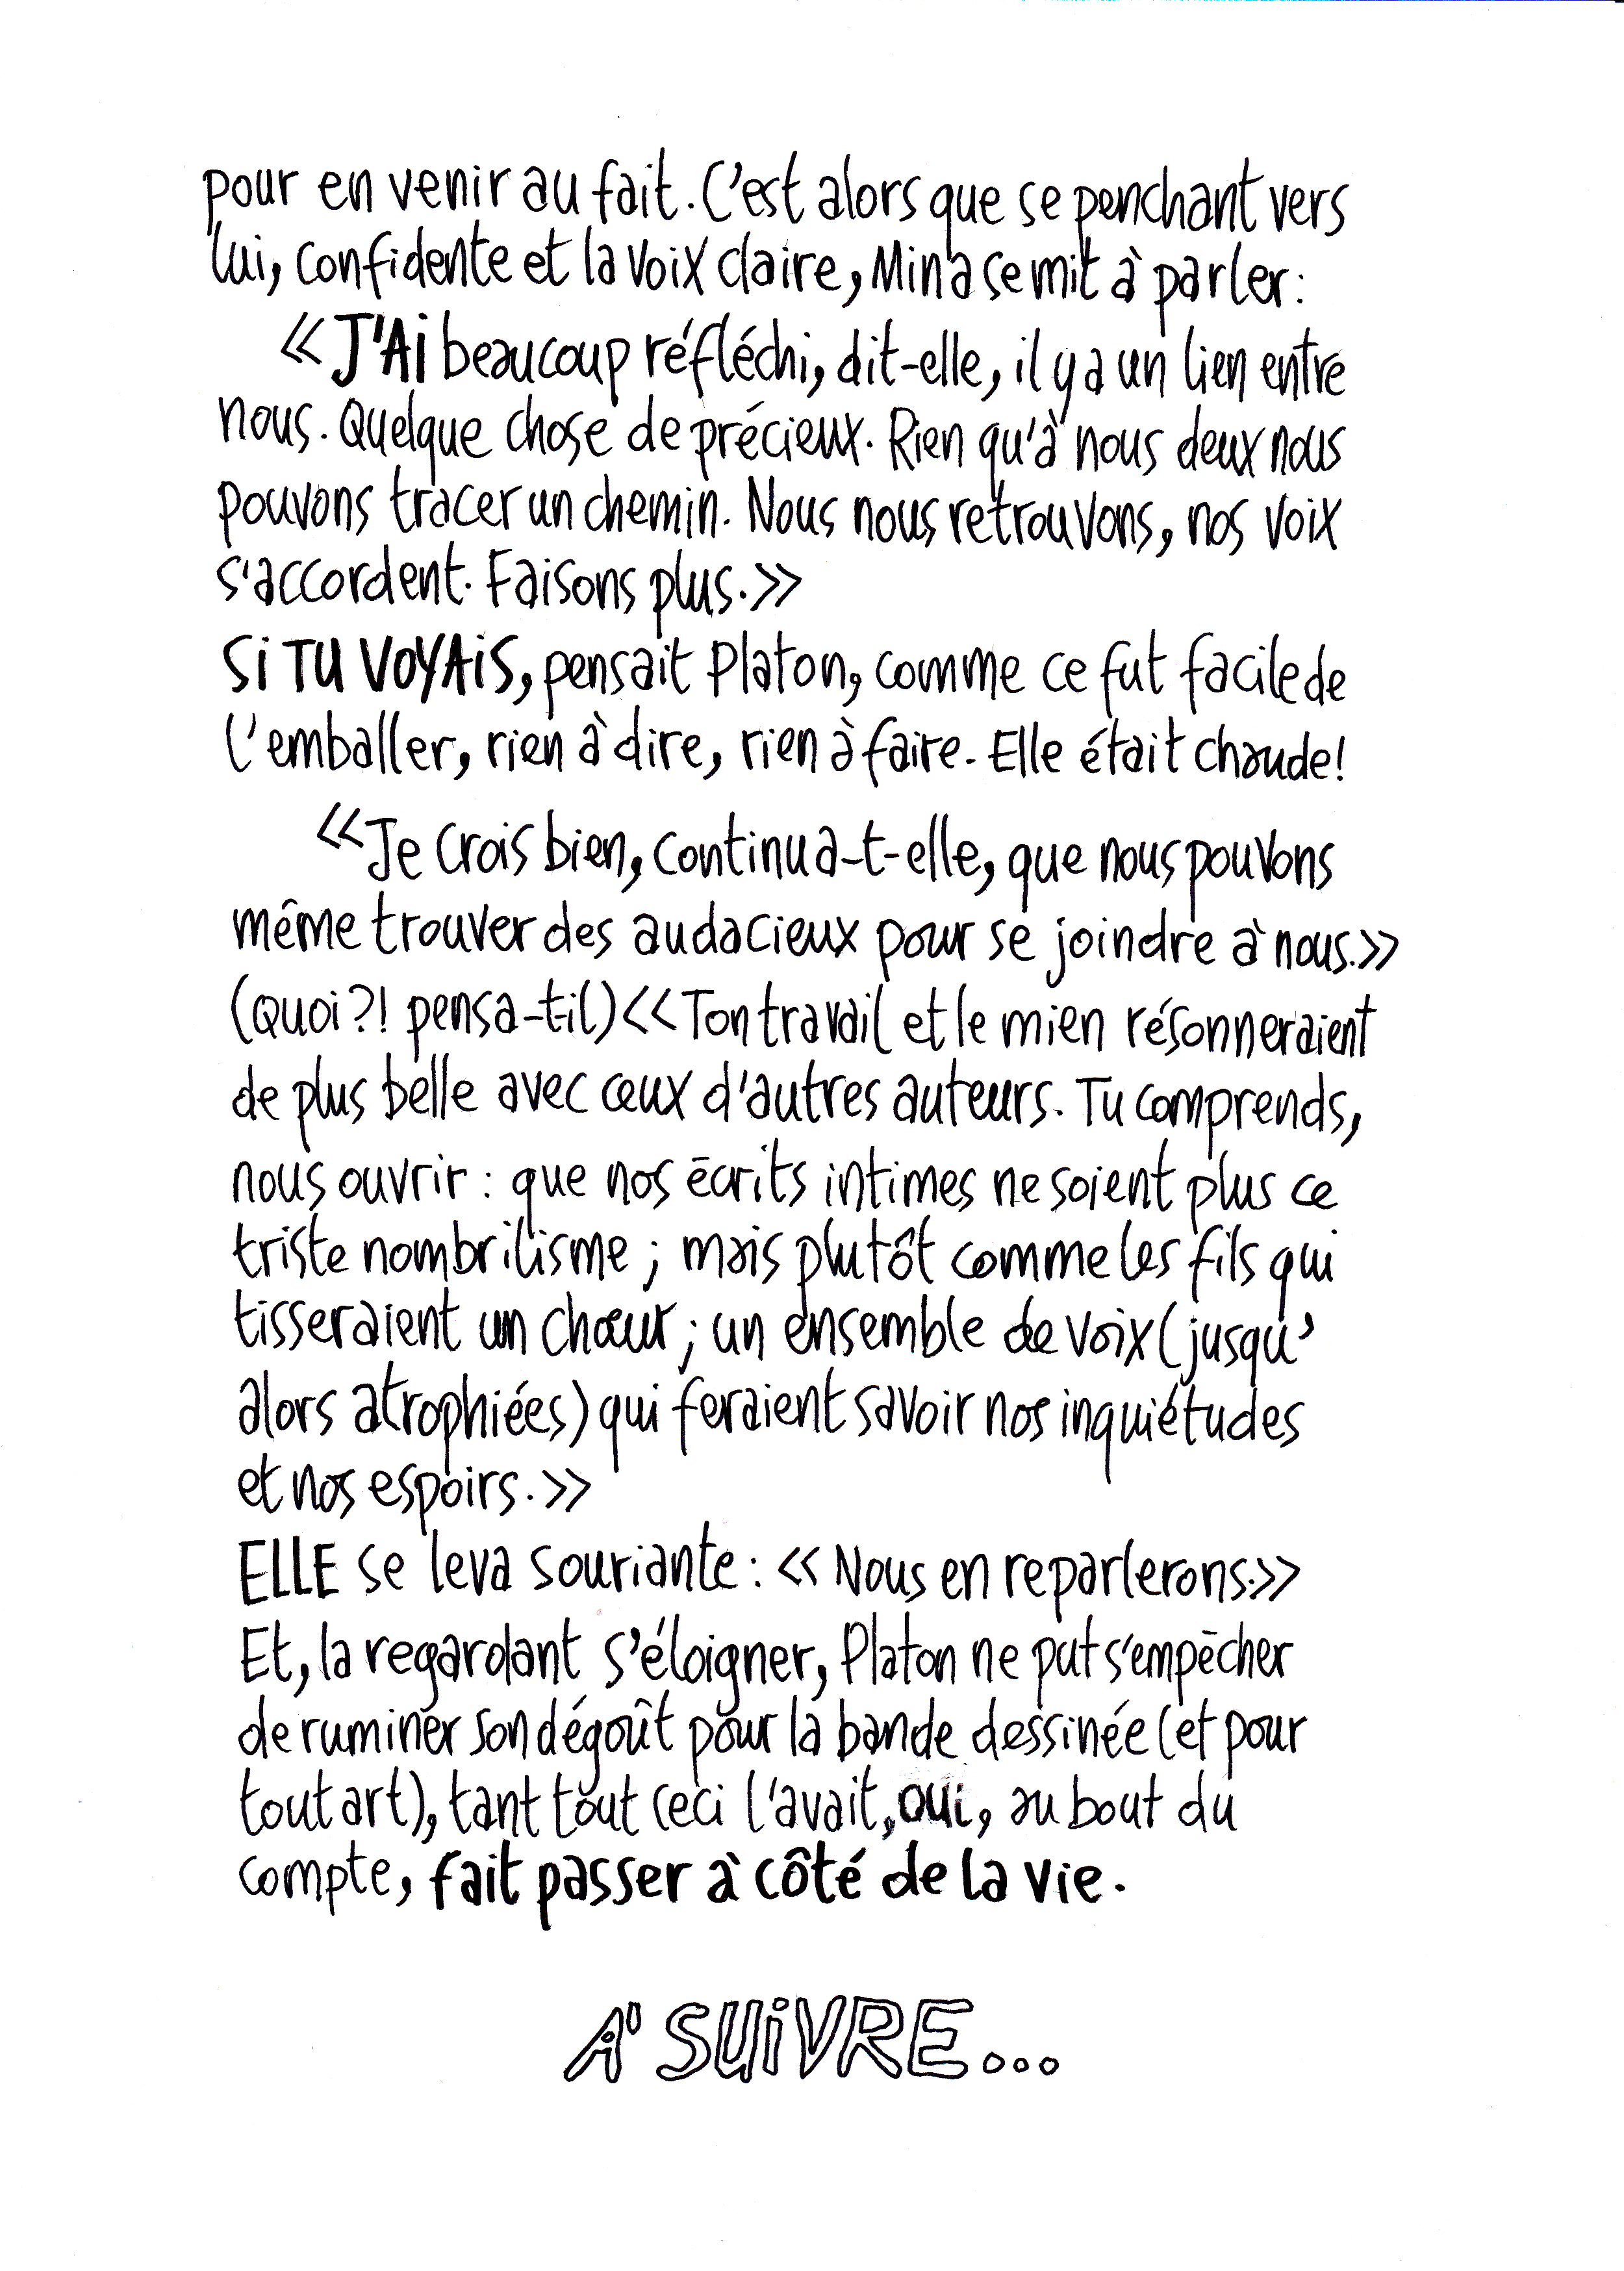 pour en venir au fait. C'est alors que se penchant vers
lui, confidente et la voix claire, Mina se mit à parler :
« J'Ai beaucoup réfléchi, dit-elle, il y a un lien entre
nous. Quelque chose de précieux. Rien qu'à nous deux nous
pouvons tracer un chemin. Nous nous retrouvons, nos voix
s'accordent. Faisons plus. »
Si TU VOYAiS, pensait Platon, comme ce fut facile de
l'emballer, rien à dire, rien à faire. Elle était chaude!
« Je crois bien, continua-t-elle, que nous pouvons
même trouver des audacieux pour se joindre à nous. »
(Quoi ?! pensa-t-il) « Ton travail et le mien résonneraient
de plus belle avec ceux d'autres auteurs. Tu comprends,
nous ouvrir : que nos écrits intimes ne soient plus ce
triste nombrilisme ; mais plutôt comme les fils qui
tisseraient un chœur ; un ensemble de voix (jusqu'
alors atrophiées) qui feraient savoir nos inquiétudes
et nos espoirs. »
ELLE se leva souriante : « Nous en reparlerons. »
Et, la regardant s'éloigner, Platon ne put s'empêcher
de ruminer son dégoût pour la bande dessinée (et pour
tout art), tant tout ceci l'avait, oui, au bout du
compte, fait passer à côté de la vie.
À SUiVRE...